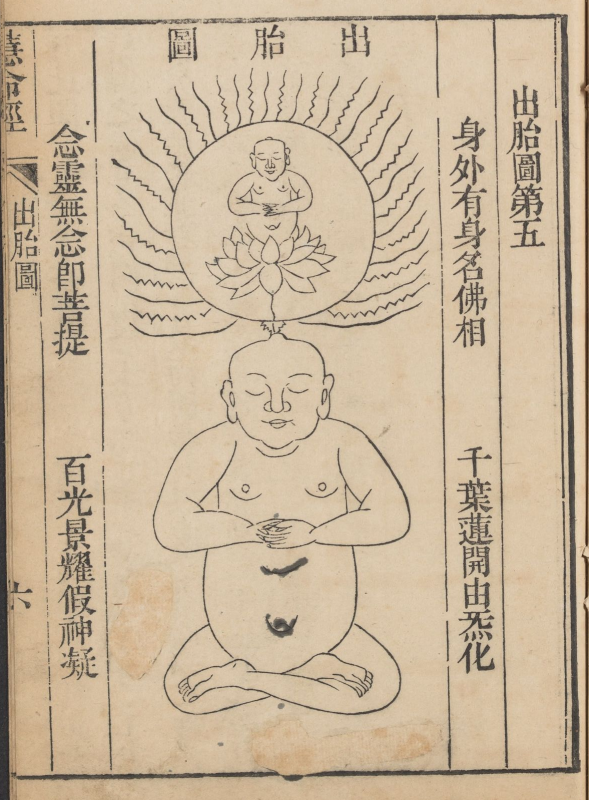 出胎圖第五
身外有身名佛相
千葉蓮開由炁化
出胎圖
念靈無念即菩提
百光景耀假神凝
慧命經
出胎圖
六